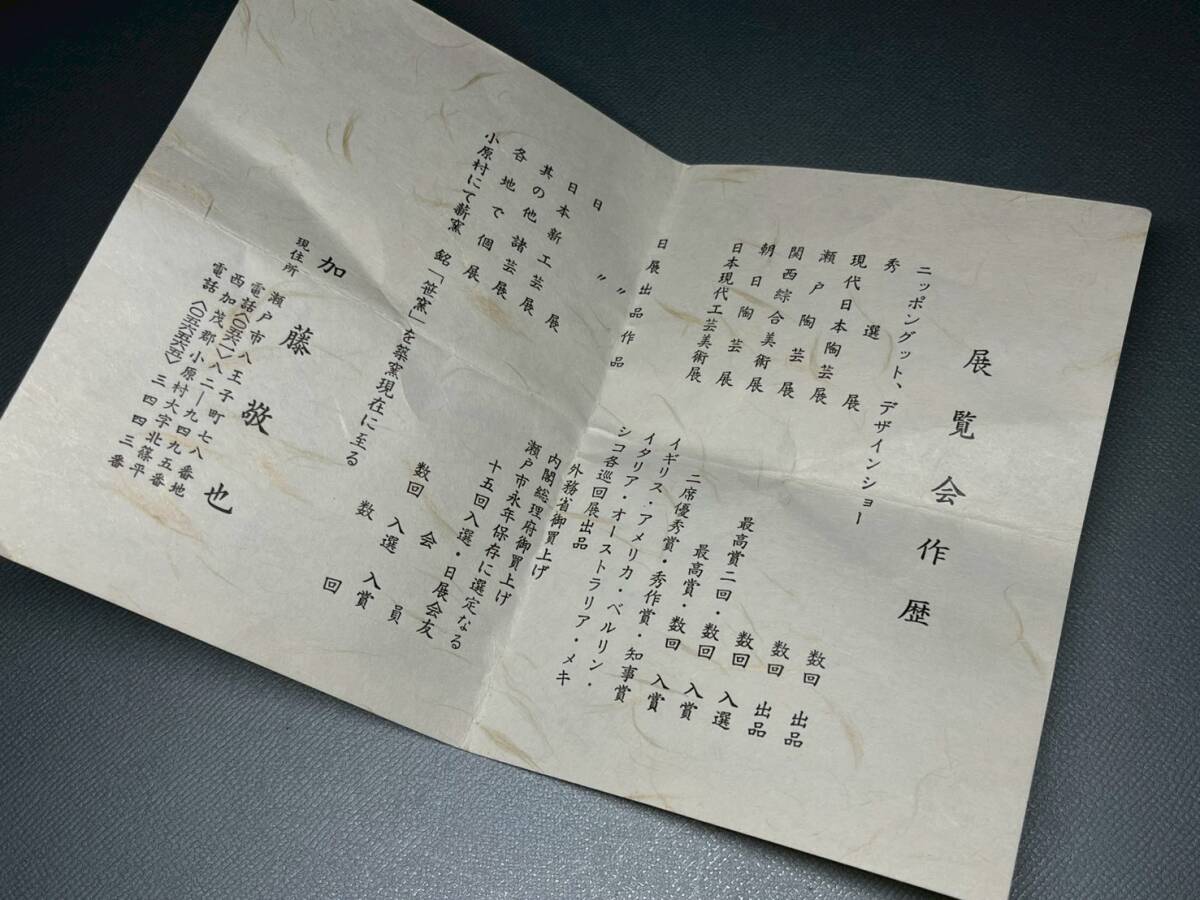 展覧会作歴
ニッポングット、デザインショー 数回 出品
秀選展 数回 出品
現代日本陶芸展 数回 入選
瀬戸陶芸展 最高賞二回・数回 入賞
関西綜合美術展 最高賞・数回 入賞
朝日陶芸展 二席優秀賞・秀作賞・知事賞
日本現代工芸美術展 イギリス・アメリカ・ベルリン・
イタリア・オーストラリア・メキ
シコ各巡回展出品
日展出品作品 外務省御買上げ
〃 内閣総理府御買上げ
〃 瀬戸市永年保存に選定なる
日展 十五回入選・日展会友
日本新工芸展 数回 会員
其の他諸芸展 入選 入賞
各地で個展 数回
小原村にて薪窯 銘「笹窯」を築窯現在に至る
加藤敬也
現住所 瀬戸市八王子町七八番地
電話〈〇五六一〉八二―九四九五番
西加茂郡小原村大字北篠平
電話〈〇五六五六五〉三四四三番